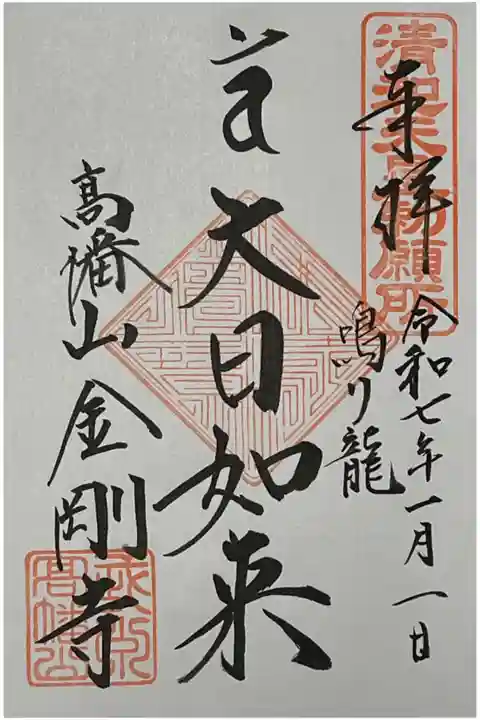 奉拝
令和七年一月一日
鳴り龍
大日如来
高幡山金剛寺
清和天皇勅願所